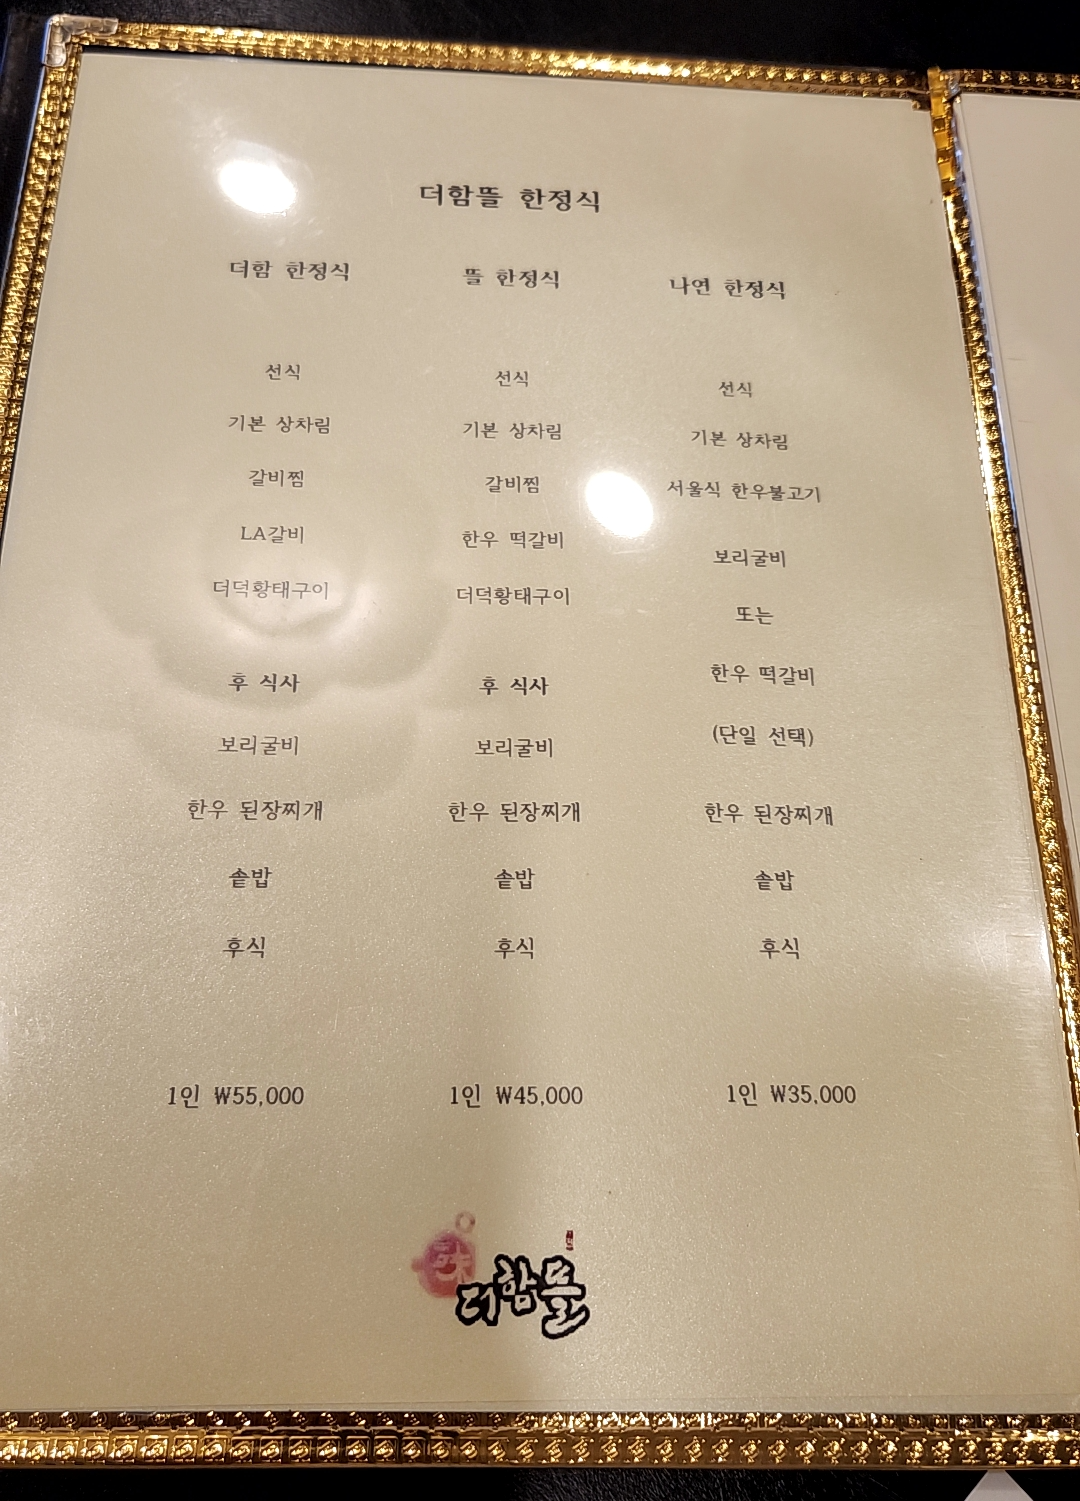 더함뜰 한정식
더함 한정식
선식
기본 상차림
갈비찜
LA갈비
더덕황태구이
후 식사
보리굴비
한우 된장찌개
솥밥
후식
1인 ₩55,000
뜰 한정식
선식
기본 상차림
갈비찜
한우 떡갈비
더덕황태구이
후 식사
보리굴비
한우 된장찌개
솥밥
후식
1인 ₩45,000
나연 한정식
선식
기본 상차림
서울식 한우불고기
보리굴비
또는
한우 떡갈비
(단일 선택)
한우 된장찌개
솥밥
후식
1인 ₩35,000
더함뜰